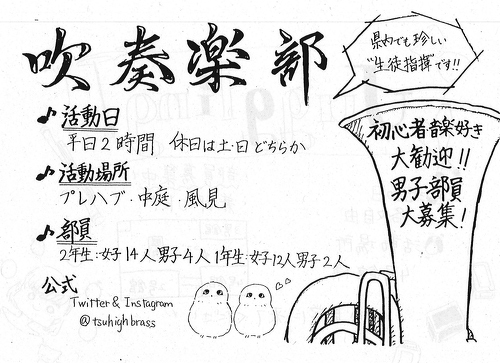 吹奏楽部
県内でも珍しい
"生徒指揮"です!!
♪活動日
平日2時間 休日は土・日どちらか
♪活動場所
プレハブ・中庭・風見
♪部員
2年生:女子14人男子4人1年生:女子12人男子2人
公式
Twitter & Instagram
@tsuhighbrass
初心者音楽好き
大歓迎!!
男子部員
大募集!